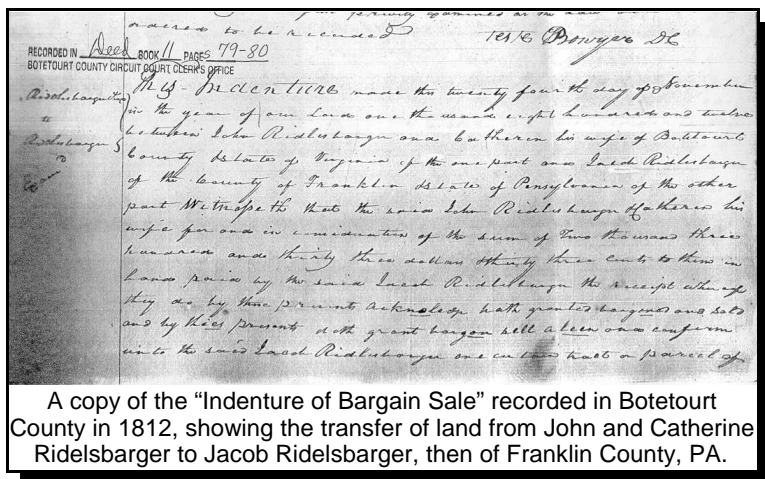 ordered to be recorded Teste Bowyer DC
RECORDED IN Deed BOOK 11 PAGES 79-80
BOTETOURT COUNTY CIRCUIT COURT CLERK'S OFFICE
This Indenture made this twenty fourth day of November
in the year of our Lord one thousand eight hundred and twelve
between John Ridlesbargur and Catherin his wife of Botetourt
County & State of Virginia of the one part and Jacob Ridlesbargur
of the County of Franklin & State of Pensylvania of the other
part Witnesseth that the said John Ridlesbargur & Catherin his
wife for and in consideration of the sum of Two thousand three
hundred and thirty three dollars & thirty three cents to them in
hand paid by the said Jacob Ridlesbargur the receipt whereof
they do by these presents acknoledge hath granted bargoned and sold
and by these presents doth grant bargon sell aleen and confirm
unto the said Jacob Ridlesbargur one certain tract or parcel of
A copy of the “Indenture of Bargain Sale” recorded in Botetourt
County in 1812, showing the transfer of land from John and Catherine
Ridelsbarger to Jacob Ridelsbarger, then of Franklin County, PA.